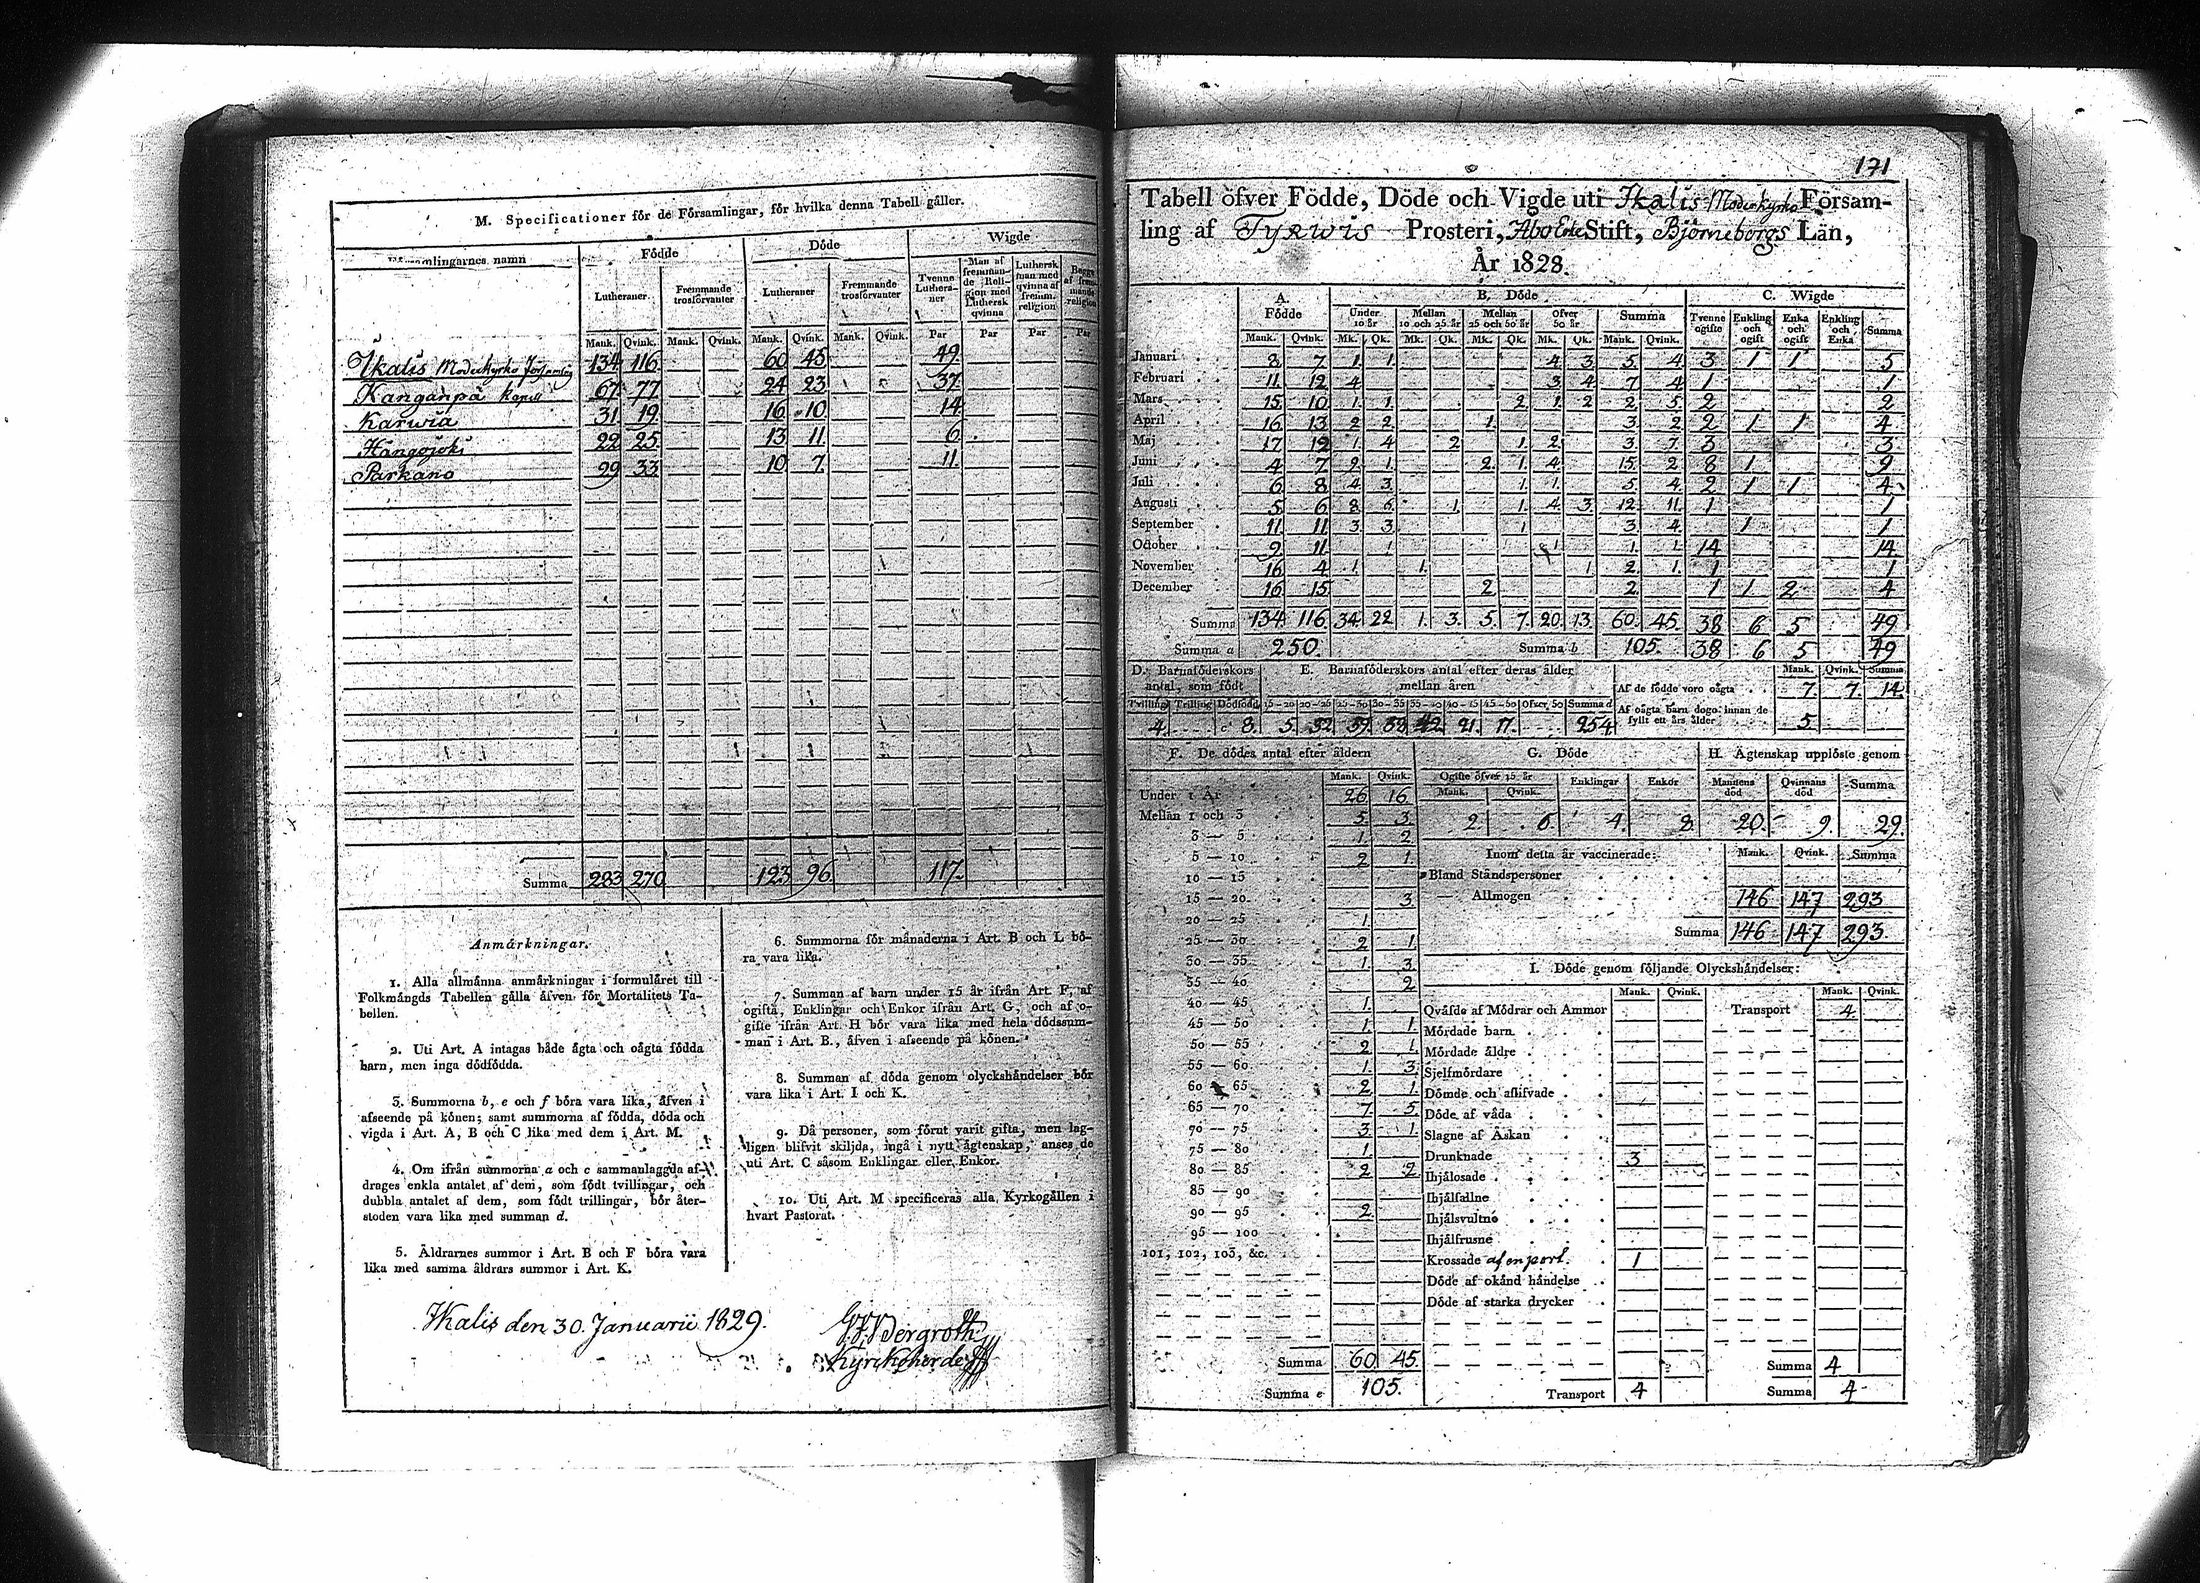 M. Specificationer för de Församlingar, för hvilka denna Tabell gäller.
Församlingarnes namn | Födde | Döde | Wigde
Lutheraner | Fremmande trosförvanter | Lutheraner | Fremmande trosförvanter | Tvenne Lutheraner | Man af fremmande Religion med Luthersk qvinna | Luthersk man med qvinna af fremm. religion | Begge af fremmande religion
Mank. | Qvink. | Mank. | Qvink. | Mank. | Qvink. | Mank. | Qvink. | Par | Par | Par | Par
Ikalis Moderkyrko Församling 134 116 60 45 49
Kangånpä Kapell 67 77 24 23 37
Karwia 31 19 16 10 14
Hångojoki 22 25 13 11 6
Parkano 29 33 10 7 11
Summa 283 270 123 96 117.
Anmärkningar.
1. Alla allmänna anmärkningar i formuläret till
Folkmängds Tabellen gälla äfven för Mortalitets Ta-
bellen.
2. Uti Art. A intagas både ägta och oägta födda
barn, men inga dödfödda.
3. Summorna b, e och f böra vara lika, äfven i
afseende på könen; samt summorna af födda, döda och
vigda i Art. A, B och C lika med dem i Art. M.
4. Om ifrån summorna a och c sammanlaggda af-
drages enkla antalet af dem, som födt tvillingar, och
dubbla antalet af dem, som födt trillingar, bör åter-
stoden vara lika med summan d.
5. Äldrarnes summor i Art. B och F böra vara
lika med samma äldrars summor i Art. K.
6. Summorna för månaderna i Art. B och L bö-
ra vara lika.
7. Summan af barn under 15 år ifrån Art. F, af
ogifta, Enklingar och Enkor ifrån Art. G, och af o-
gifte ifrån Art. H bör vara lika med hela dödssum-
man i Art. B., äfven i afseende på könen.
8. Summan af döda genom olyckshändelser bör
vara lika i Art. I och K.
9. Då personer, som förut varit gifta, men lag-
ligen blifvit skiljda, ingå i nytt ägtenskap, anses de
uti Art. C såsom Enklingar eller Enkor.
10. Uti Art. M specificeras alla Kyrkogällen i
hvart Pastorat.
Ikalis den 30. Januarii 1829.
Bergroth
Kyrkoherde
171
Tabell öfver Födde, Döde och Vigde uti Ikalis Moderkyrko Försam-
ling af Tyrwis Prosteri, Åbo Erke Stift, Björneborgs Län,
År 1828.
A. Födde | B. Döde | C. Wigde
Under 10 år | Mellan 10 och 25 år | Mellan 25 och 50 år | Öfver 50 år | Summa | Tvenne ogifte | Enkling och ogift | Enka och ogift | Enkling och Enka | Summa
Mank. | Qvink. | Mk. | Qk. | Mk. | Qk. | Mk. | Qk. | Mk. | Qk. | Mank. | Qvink.
Januari 8 7 1 1 4 3 5 4 3 1 1 5
Februari 11 12 4 3 4 7 4 1 1
Mars 15 10 1 1 2 1 2 2 5 2 2
April 16 13 2 2 1 3 2 2 1 1 4
Maj 17 12 1 4 2 1 2 3 7 3 3
Juni 4 7 9 1 2 1 4 15 2 8 1 9
Juli 6 8 4 3 1 1 5 4 2 1 1 4
Augusti 5 6 8 6 1 1 4 3 12 11 1 1
September 11 11 3 3 1 3 4 1 1
October 9 11 1 1 1 1 14 14
November 16 4 1 1 1 2 1 1 1
December 16 15 2 2 1 1 2 4
Summa 134 116 34 22 1. 3. 5. 7. 20 13 60 45. 38 6 5 49
Summa a 250. Summa b 105. 38 6 5 49
D. Barnaföderskors antal, som födt
Tvilling | Trilling | Dödfödd
4. 8.
E. Barnaföderskors antal efter deras ålder mellan åren
15 — 20 | 20 — 25 | 25 — 30 | 30 — 35 | 35 — 40 | 40 — 45 | 45 — 50 | Öfver 50 | Summa d
5. 32 59. 88 42 21. 17. 254
Mank. | Qvink. | Summa
Af de födde voro oägta 7. 7. 14.
Af oägta barn dogo innan de fyllt ett års ålder 5
F. De dödes antal efter åldern
Mank. | Qvink.
Under 1 År 26 16
Mellan 1 och 3 5. 3.
3 — 5 1. 2
5 — 10 2 1.
10 — 15
15 — 20 3.
20 — 25 1.
25 — 30 2 1.
30 — 35 1. 3.
35 — 40 2
40 — 45 1.
45 — 50 1 1
50 — 55 2 1.
55 — 60 1. 3
60 — 65 2 1.
65 — 70 7. 5
70 — 75 3. 1.
75 — 80 1.
80 — 85 2 2
85 — 90
90 — 95 2.
95 — 100
101, 102, 103, &c.
Summa 60 45.
Summa e 105.
G. Döde
Ogifte öfver 15 år | Enklingar | Enkor
Mank. | Qvink.
2. 6. 4. 8.
H. Ägtenskap upplöste genom
Mannens död | Qvinnans död | Summa
20. 9. 29.
Inom detta år vaccinerade: Mank. | Qvink. | Summa
Bland Ståndspersoner
— Allmogen 146 147 293
Summa 146 147 293.
I. Döde genom följande Olyckshändelser:
Mank. | Qvink. | Mank. | Qvink.
Qväfde af Mödrar och Ammor Transport 4
Mördade barn
Mördade äldre
Sjelfmördare
Dömde och aflifvade
Döde af våda
Slagne af Åskan
Drunknade 3
Ihjälosade
Ihjälfallne
Ihjälsvultne
Ihjälfrusne
Krossade af en port. 1
Döde af okänd händelse
Döde af starka drycker
Summa 4
Transport 4 Summa 4